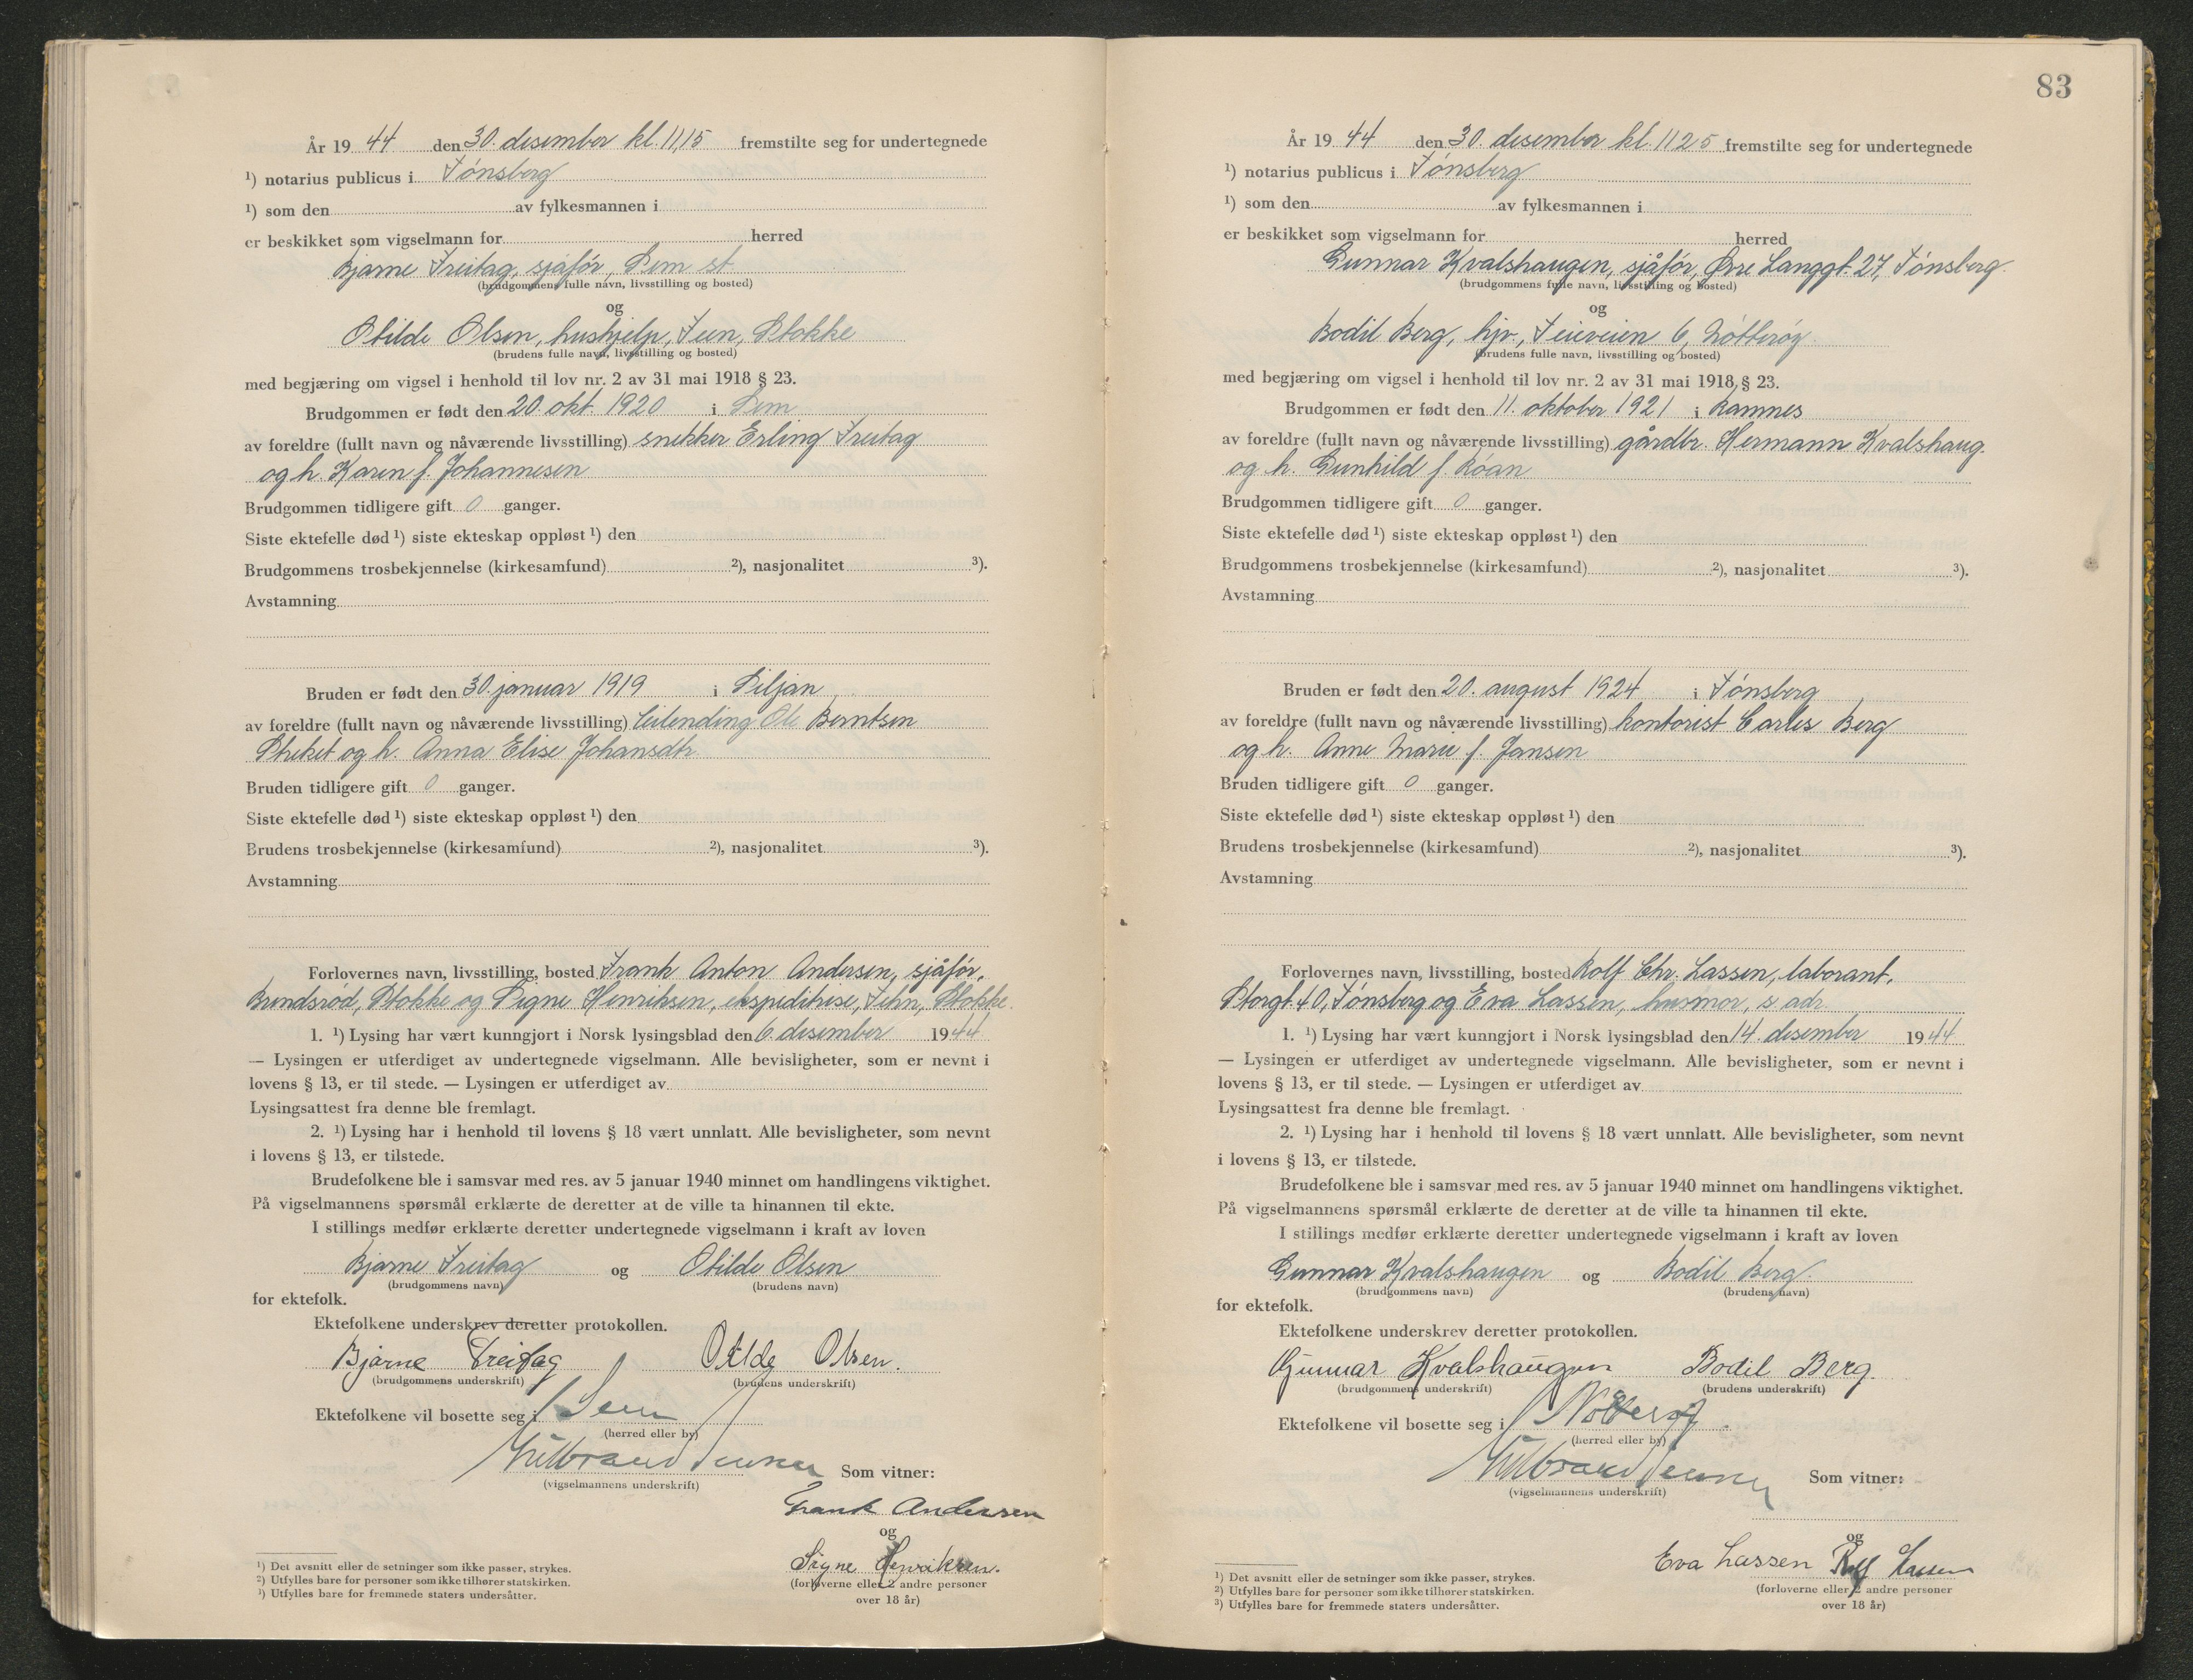 År 1944 den 30. desember kl. 11,15 fremstilte seg for undertegnede
¹) notarius publicus i Tønsberg
¹) som den av fylkesmannen i
er beskikket som vigselmann for herred
Bjarne Freitag, sjåfør, Sem st
(brudgommens fulle navn, livsstilling og bosted)
og
Otilde Olsen, hushjelp, Feen, Stokke
(brudens fulle navn, livsstilling og bosted)
med begjæring om vigsel i henhold til lov nr. 2 av 31 mai 1918 § 23.
Brudgommen er født den 20. okt. 1920 i Sem
av foreldre (fullt navn og nåværende livsstilling) snekker Erling Freitag
og h. Karen f. Johannesen
Brudgommen tidligere gift 0 ganger.
Siste ektefelle død ¹) siste ekteskap oppløst ¹) den
Brudgommens trosbekjennelse (kirkesamfund) ²), nasjonalitet ³).
Avstamning
Bruden er født den 30. januar 1919 i Siljan
av foreldre (fullt navn og nåværende livsstilling) leilending Ole Berntsen
og h. Anna Elise Johansdtr
Bruden tidligere gift 0 ganger.
Siste ektefelle død ¹) siste ekteskap oppløst ¹) den
Brudens trosbekjennelse (kirkesamfund) ²), nasjonalitet ³).
Avstamning
Forlovernes navn, livsstilling, bosted Frank Anton Andersen, sjåfør,
Brundsrød, Stokke og Signe Henriksen, ekspeditrise, Fehn, Stokke.
1. ¹) Lysing har vært kunngjort i Norsk lysingsblad den 6. desember 1944
— Lysingen er utferdiget av undertegnede vigselmann. Alle bevisligheter, som er nevnt i
lovens § 13, er til stede. — Lysingen er utferdiget av
Lysingsattest fra denne ble fremlagt.
2. ¹) Lysing har i henhold til lovens § 18 vært unnlatt. Alle bevisligheter, som nevnt
i lovens § 13, er tilstede.
Brudefolkene ble i samsvar med res. av 5 januar 1940 minnet om handlingens viktighet.
På vigselmannens spørsmål erklærte de deretter at de ville ta hinannen til ekte.
I stillings medfør erklærte deretter undertegnede vigselmann i kraft av loven
Bjarne Freitag og Otilde Olsen
(brudgommens navn) (brudens navn)
for ektefolk.
Ektefolkene underskrev deretter protokollen.
Bjarne Freitag Otilde Olsen.
(brudgommens underskrift) (brudens underskrift)
Ektefolkene vil bosette seg i Sem
(herred eller by)
Som vitner:
(vigselmannens underskrift)
Frank Andersen
og
Signe Henriksen.
(forloverne eller 2 andre personer
over 18 år)
¹) Det avsnitt eller de setninger som ikke passer, strykes.
²) Utfylles bare for personer som ikke tilhører statskirken.
³) Utfylles bare for fremmede staters undersåtter.
83
År 1944 den 30. desember kl. 1125 fremstilte seg for undertegnede
¹) notarius publicus i Tønsberg
¹) som den av fylkesmannen i
er beskikket som vigselmann for herred
Gunnar Kvalshaugen, sjåfør, Øvre Langgt. 27, Tønsberg.
(brudgommens fulle navn, livsstilling og bosted)
og
Bodil Berg, hjv., Teieveien 6, Nøtterøy
(brudens fulle navn, livsstilling og bosted)
med begjæring om vigsel i henhold til lov nr. 2 av 31 mai 1918 § 23.
Brudgommen er født den 11. oktober 1921 i Ramnes
av foreldre (fullt navn og nåværende livsstilling) gårdbr. Hermann Kvalshaug.
og h. Gunhild f. Røan
Brudgommen tidligere gift 0 ganger.
Siste ektefelle død ¹) siste ekteskap oppløst ¹) den
Brudgommens trosbekjennelse (kirkesamfund) ²), nasjonalitet ³).
Avstamning
Bruden er født den 20. august 1924 i Tønsberg
av foreldre (fullt navn og nåværende livsstilling) kontorist Carles Berg
og h. Anne Marie f. Jansen
Bruden tidligere gift 0 ganger.
Siste ektefelle død ¹) siste ekteskap oppløst ¹) den
Brudens trosbekjennelse (kirkesamfund) ²), nasjonalitet ³).
Avstamning
Forlovernes navn, livsstilling, bosted Rolf Chr. Lassen, laborant,
Storgt. 40, Tønsberg og Eva Lassen, husmor, s. adr.
1. ¹) Lysing har vært kunngjort i Norsk lysingsblad den 14. desember 1944
— Lysingen er utferdiget av undertegnede vigselmann. Alle bevisligheter, som er nevnt i
lovens § 13, er til stede. — Lysingen er utferdiget av
Lysingsattest fra denne ble fremlagt.
2. ¹) Lysing har i henhold til lovens § 18 vært unnlatt. Alle bevisligheter, som nevnt
i lovens § 13, er tilstede.
Brudefolkene ble i samsvar med res. av 5 januar 1940 minnet om handlingens viktighet.
På vigselmannens spørsmål erklærte de deretter at de ville ta hinannen til ekte.
I stillings medfør erklærte deretter undertegnede vigselmann i kraft av loven
Gunnar Kvalshaugen og Bodil Berg.
(brudgommens navn) (brudens navn)
for ektefolk.
Ektefolkene underskrev deretter protokollen.
Gunnar Kvalshaugen Bodil Berg.
(brudgommens underskrift) (brudens underskrift)
Ektefolkene vil bosette seg i Nøtterøy.
(herred eller by)
Som vitner:
(vigselmannens underskrift)
og
Eva Lassen Rolf Lassen
(forloverne eller 2 andre personer
over 18 år)
¹) Det avsnitt eller de setninger som ikke passer, strykes.
²) Utfylles bare for personer som ikke tilhører statskirken.
³) Utfylles bare for fremmede staters undersåtter.